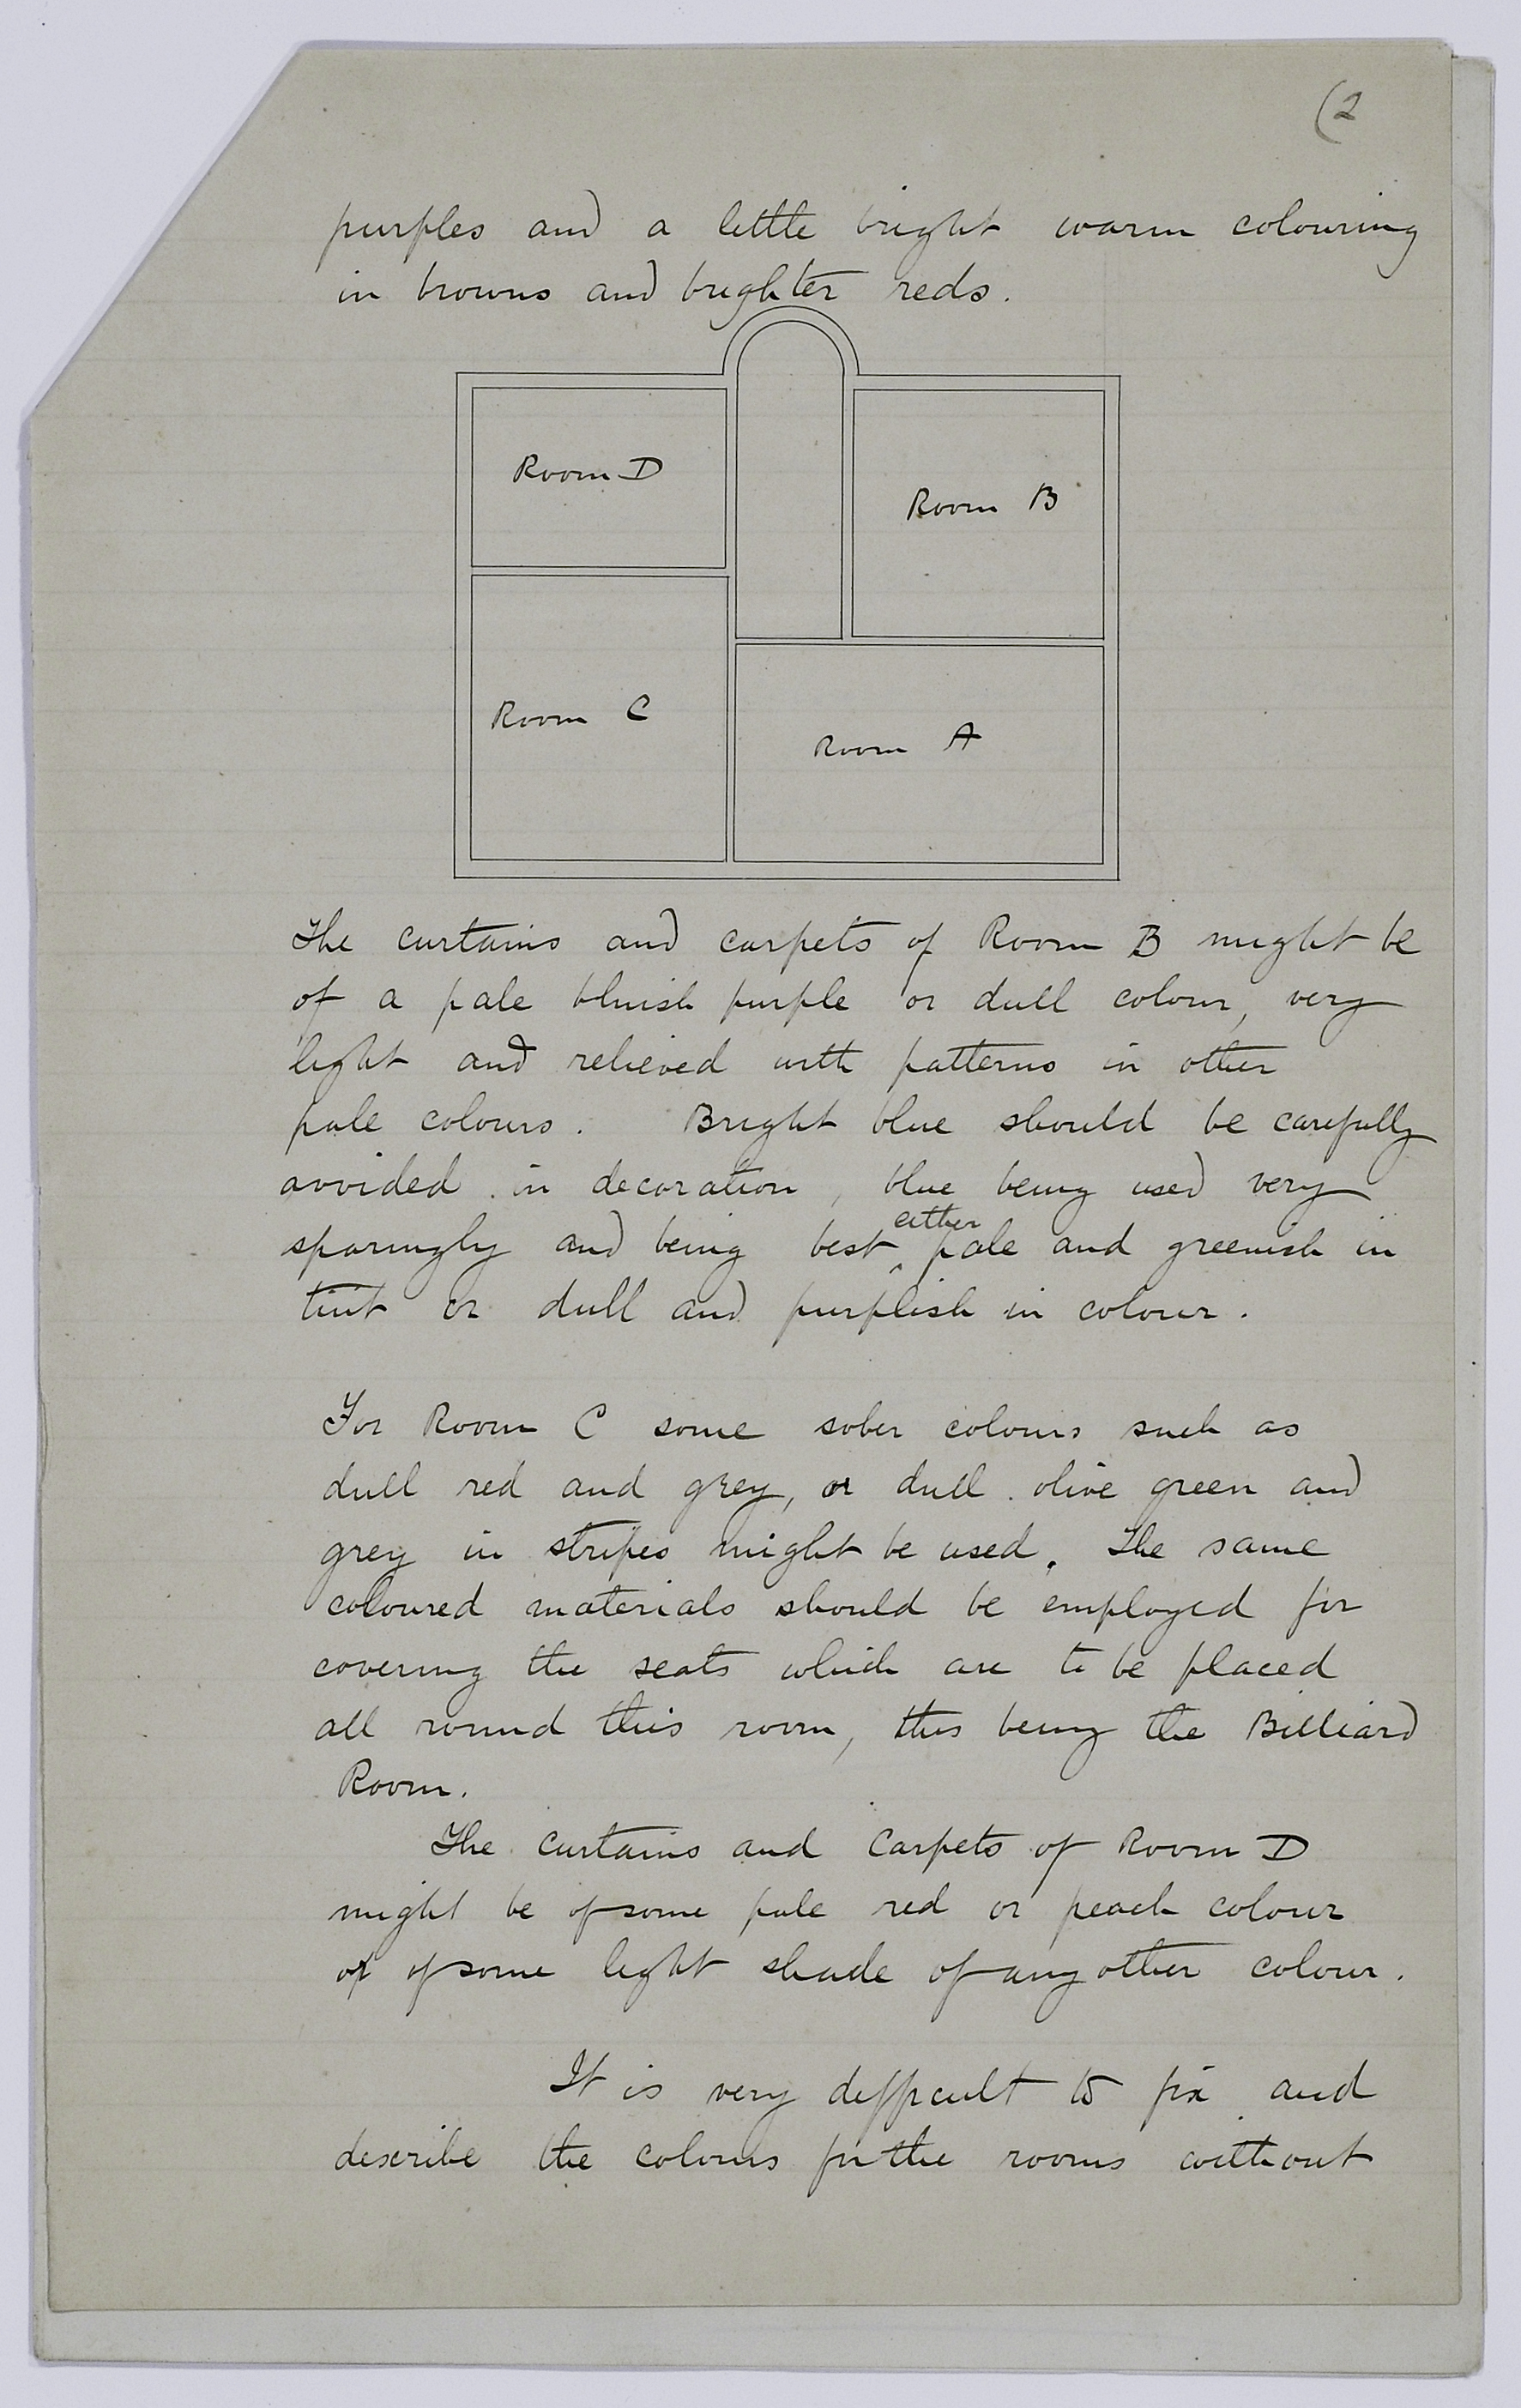 (2
purples and a little bright warm colouring
in browns and brighter reds.
Room D
Room B
Room C
Room A
The curtains and carpets of Room B might be
of a pale bluish purple or dull colour, very
light and relieved with patterns in other
pale colours. Bright blue should be carefully
avoided in decoration, blue being used very
sparingly and being best ‸either pale and greenish in
tint or dull and purplish in colour.
For Room C some sober colours such as
dull red and grey, or dull olive green and
grey in stripes might be used. The same
coloured materials should be employed for
covering the seats which are to be placed
all round this room, this being the Billiard
Room.
The Curtains and Carpets of Room D
might be of some pale red or peach colour
or of some light shade of any other colour.
It is very difficult to fix and
describe the colours for the rooms without